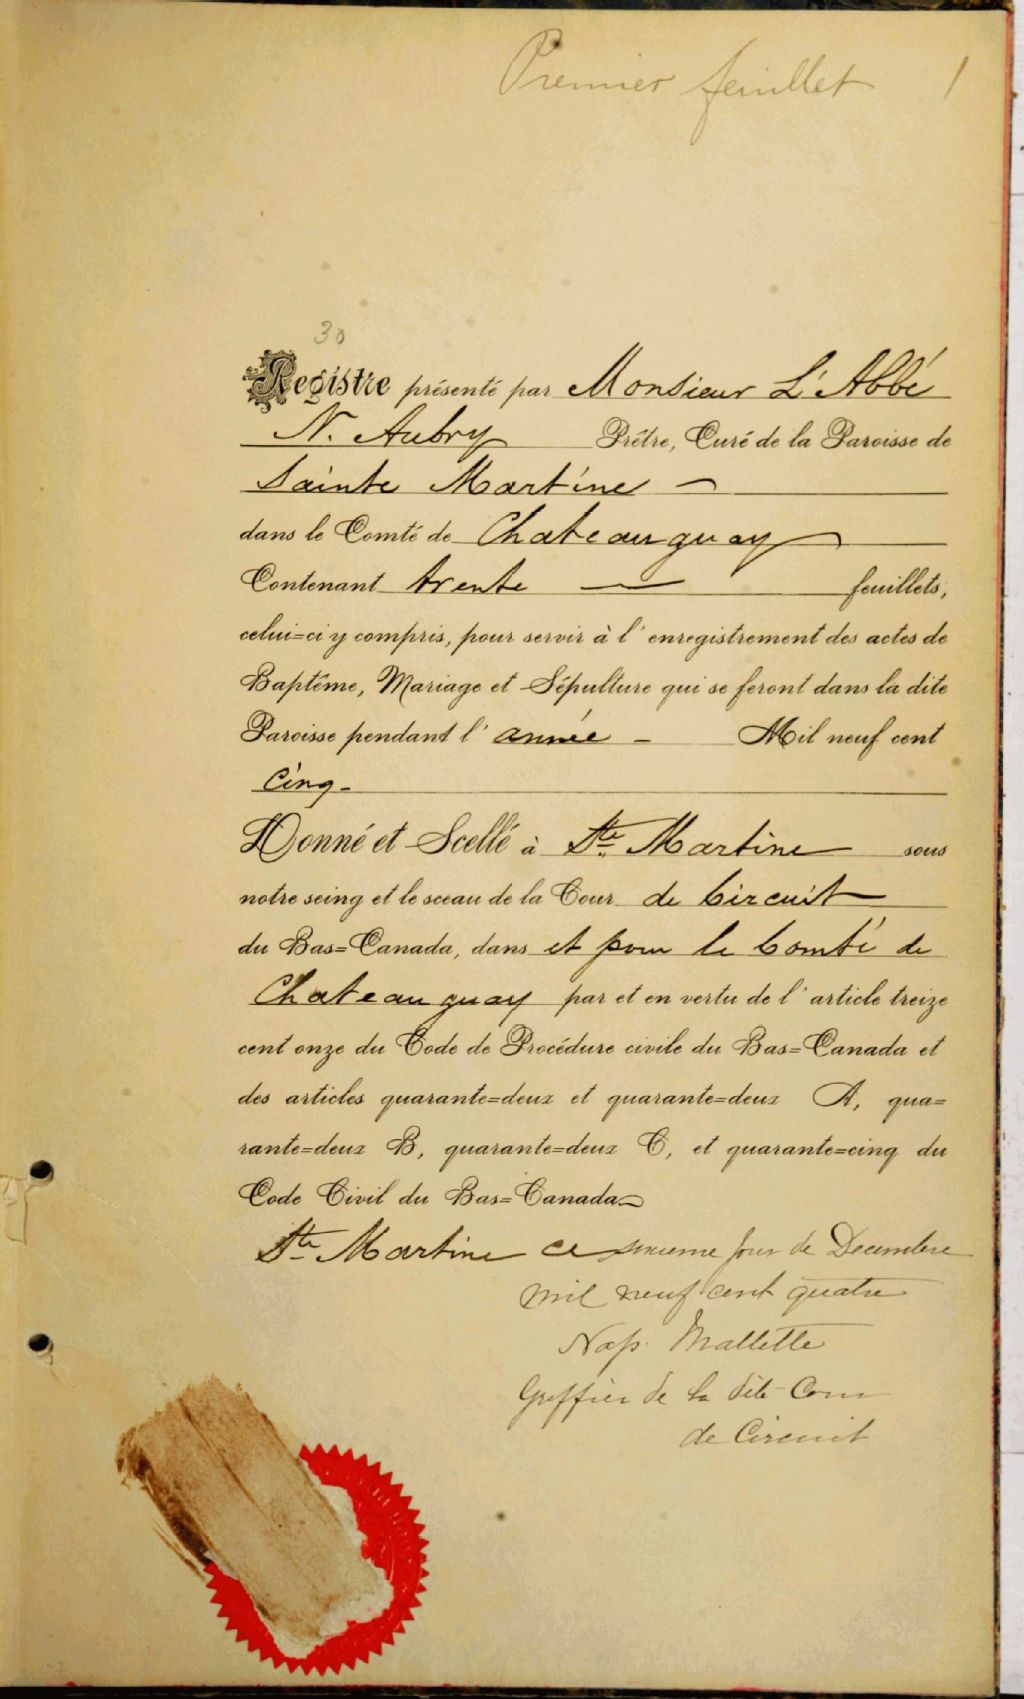 Premier feuillet 1
30
Registre présenté par Monsieur L'Abbé
N. Aubry Prêtre, Curé de la Paroisse de
Sainte Martine —
dans le Comté de Chateauguay
Contenant trente — feuillets,
celui=ci y compris, pour servir à l'enregistrement des actes de
Baptême, Mariage et Sépulture qui se feront dans la dite
Paroisse pendant l'année — Mil neuf cent
Cinq-
Donné et Scellé à Ste Martine sous
notre seing et le sceau de la Cour de Circuit
du Bas=Canada, dans et pour le Comté de
Chateauguay par et en vertu de l'article treize
cent onze du Code de Procédure civile du Bas=Canada et
des articles quarante=deux et quarante=deux A, qua=
rante=deux B, quarante=deux C, et quarante=cinq du
Code Civil du Bas=Canada
Ste Martine ce jour de Decembre
mil neuf cent quatre
Nap. Mallette
Greffier de la dite Cour
de Circuit